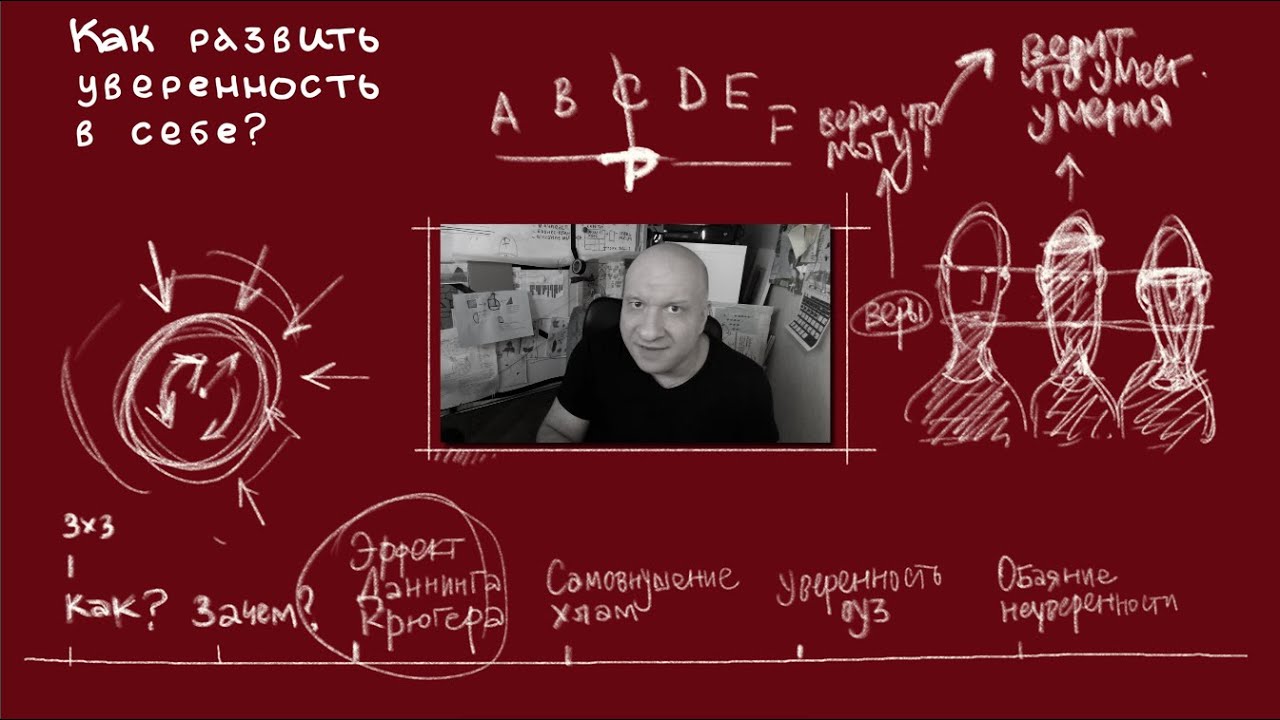 Как развить
уверенность
в себе?
A B C D E F
P
верю, что
могу?
верит
что умеет.
умения
веры
3x3
Как?
Зачем?
Эффект
Даннинга
Крюгера
Самовнушение
хлам
уверенность
вуз
Обаяние
неуверенности